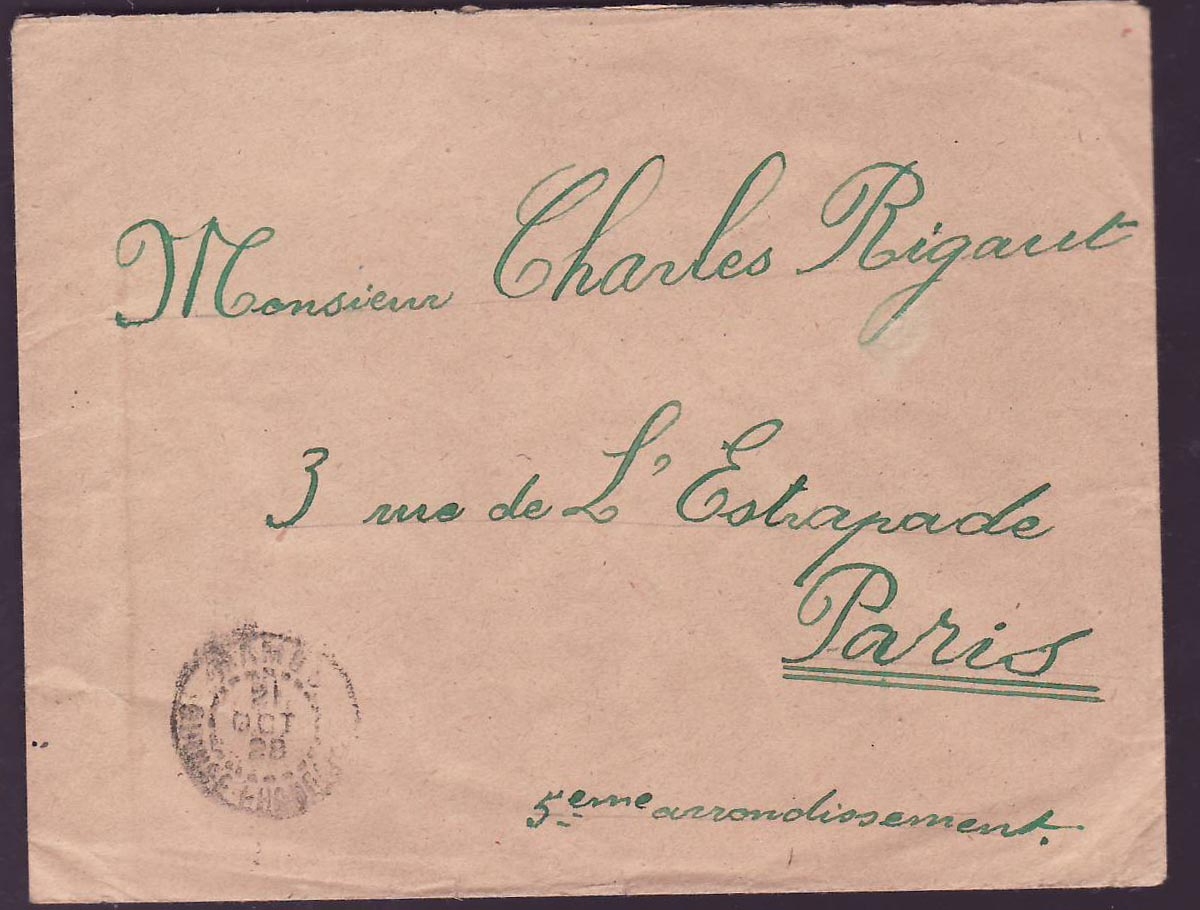 Monsieur Charles Rigaut
3 rue de L'Estrapade
Paris
5eme arrondissement.
MAMOU
21
OCT
28